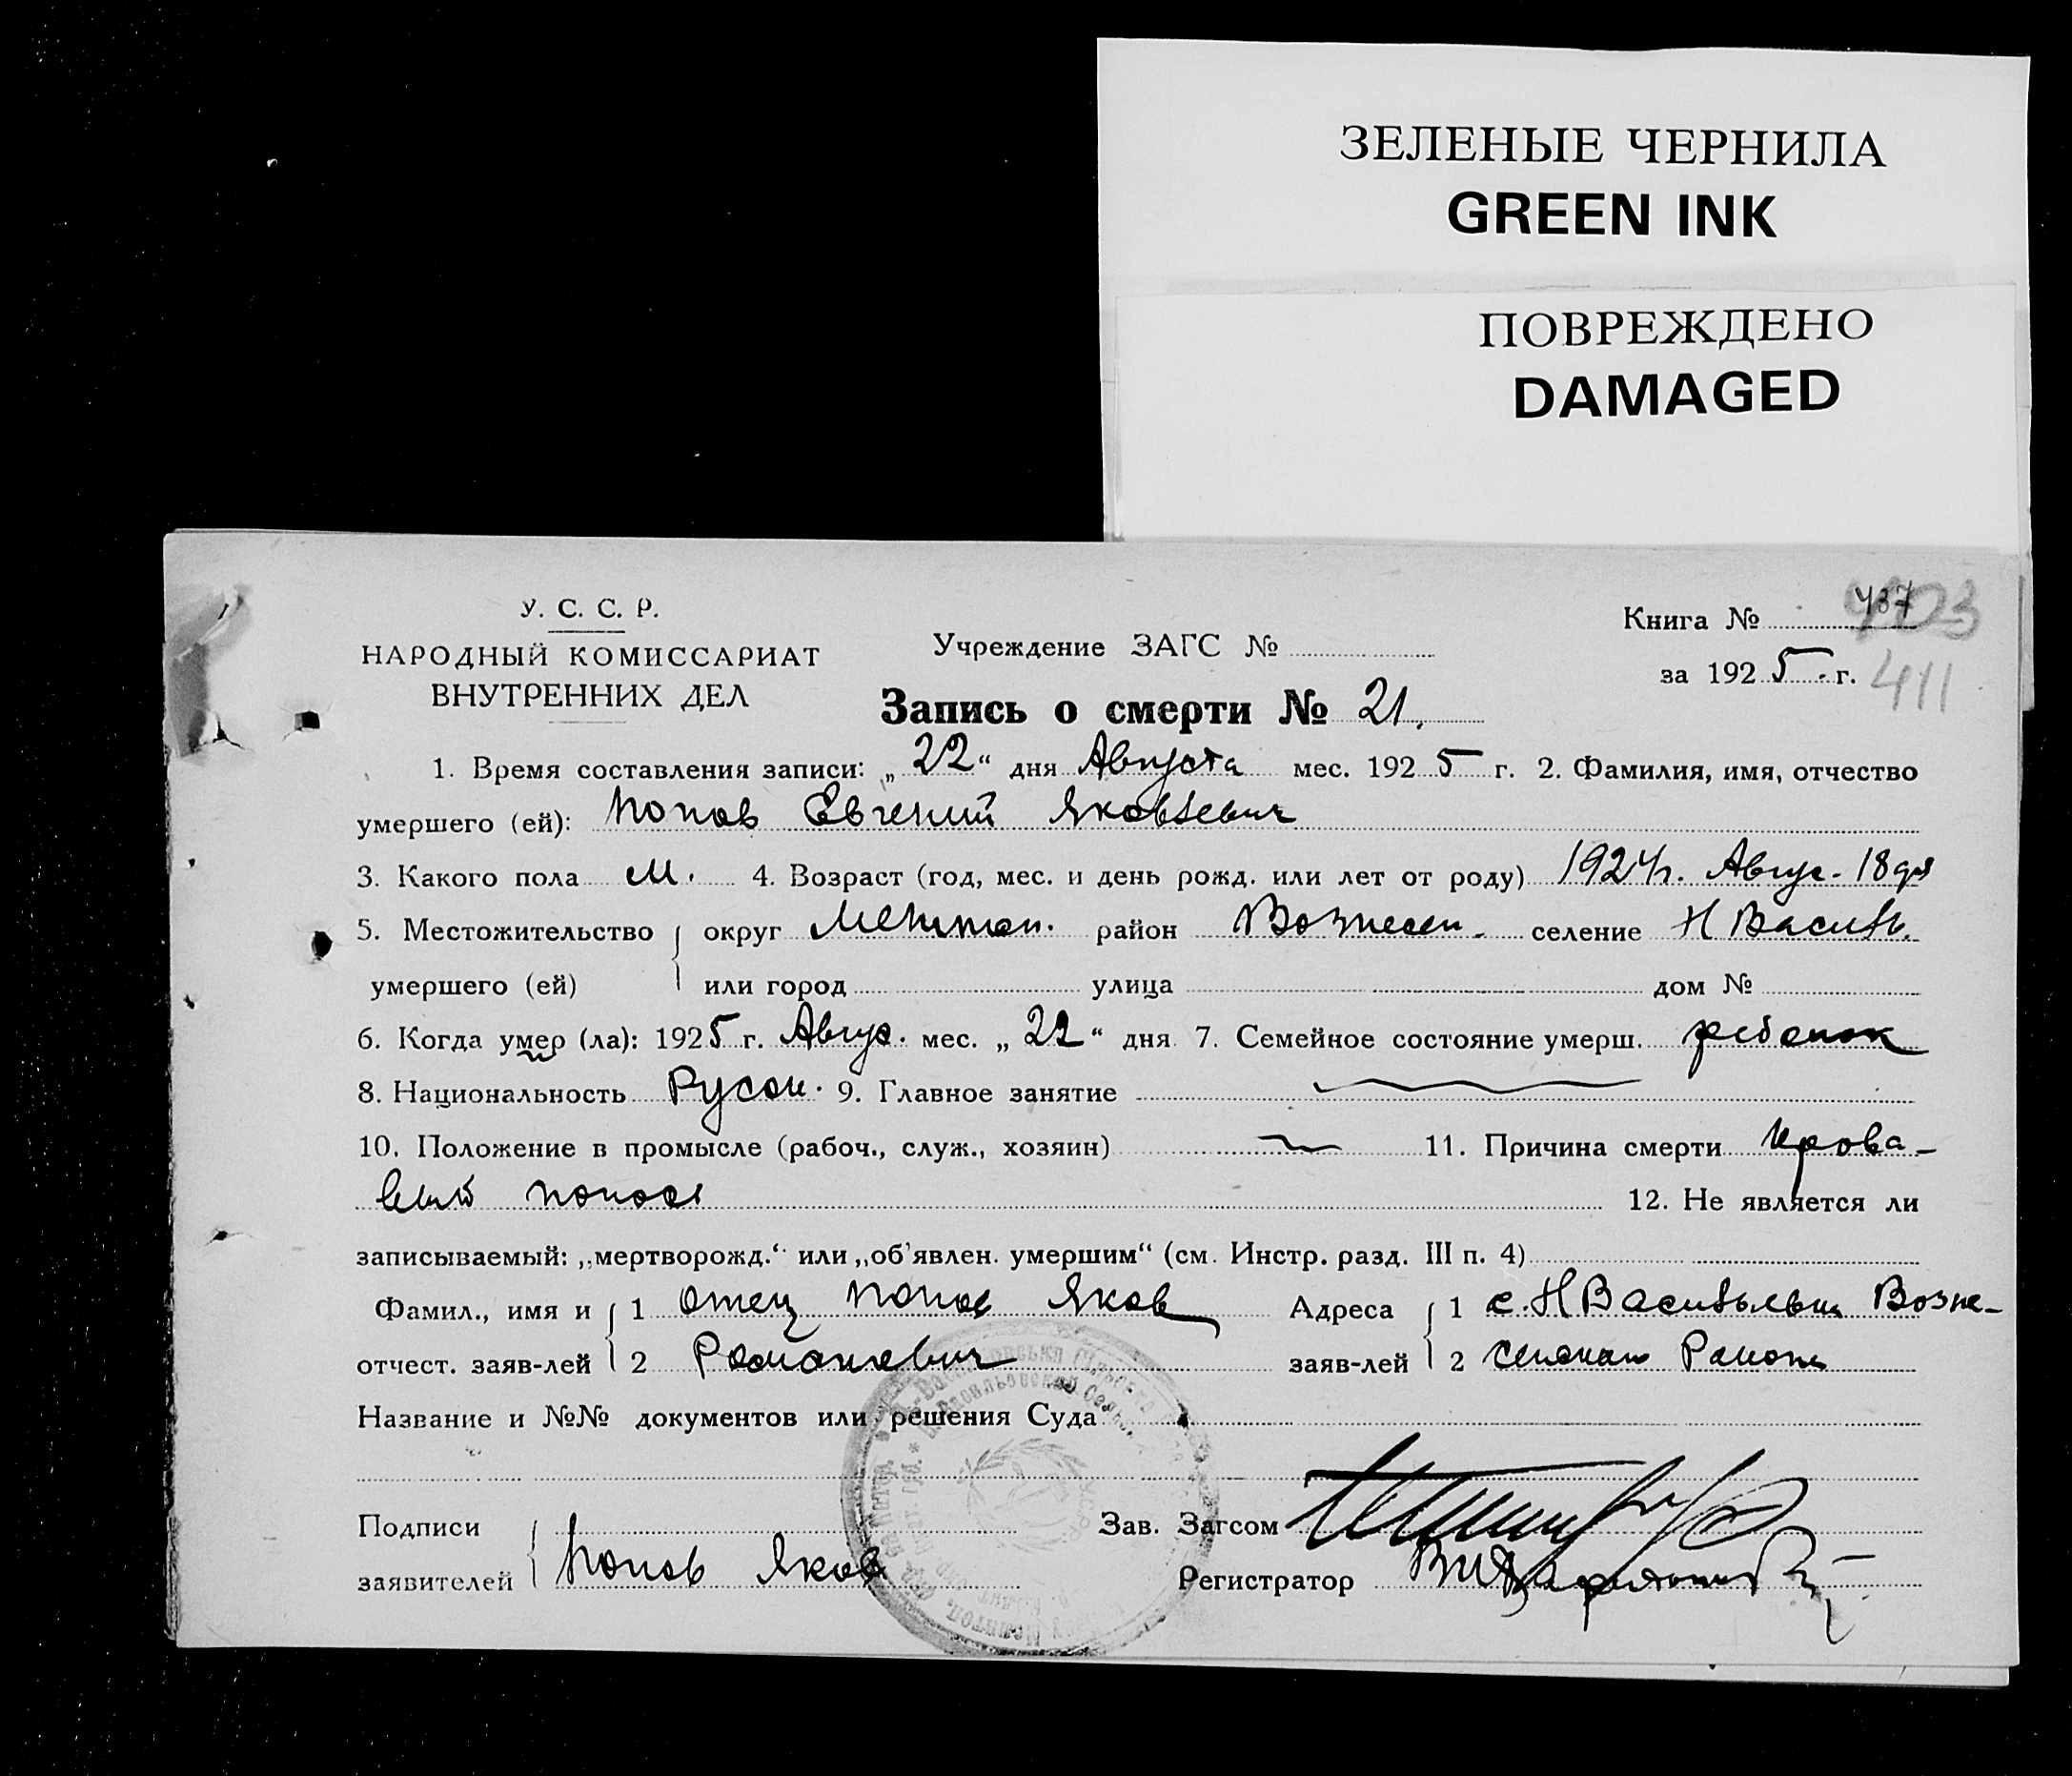 ЗЕЛЕНЫЕ ЧЕРНИЛА
GREEN INK
ПОВРЕЖДЕНО
DAMAGED
У. С. С. Р.
НАРОДНЫЙ КОМИССАРИАТ
ВНУТРЕННИХ ДЕЛ
Учреждение ЗАГС №
Книга № 437
за 1925 г. 411
Запись о смерти № 21.
1. Время составления записи: „22“ дня Августа мес. 1925 г. 2. Фамилия, имя, отчество
умершего (ей): Попов Евгений Яковлевич
3. Какого пола м. 4. Возраст (год, мес. и день рожд. или лет от роду) 1924 г. Авгус. 18 дня
5. Местожительство округ Мелитоп. район Вознесен. селение Н Василь.
умершего (ей) или город улица дом №
6. Когда умер (ла): 1925 г. Авгус. мес. „22“ дня 7. Семейное состояние умерш. ребенок
8. Национальность Русск. 9. Главное занятие
10. Положение в промысле (рабоч., служ., хозяин) 11. Причина смерти крова-
вый понос
12. Не является ли
записываемый: „мертворожд.“ или „об’явлен. умершим“ (см. Инстр. разд. III п. 4)
Фамил., имя и 1 отец Попов Яков Адреса 1 с. Н Васильевка Возне-
отчест. заяв-лей 2 Романович заяв-лей 2 сенского Района
Название и №№ документов или решения Суда
Подписи
Зав. Загсом
заявителей Попов Яков
Регистратор